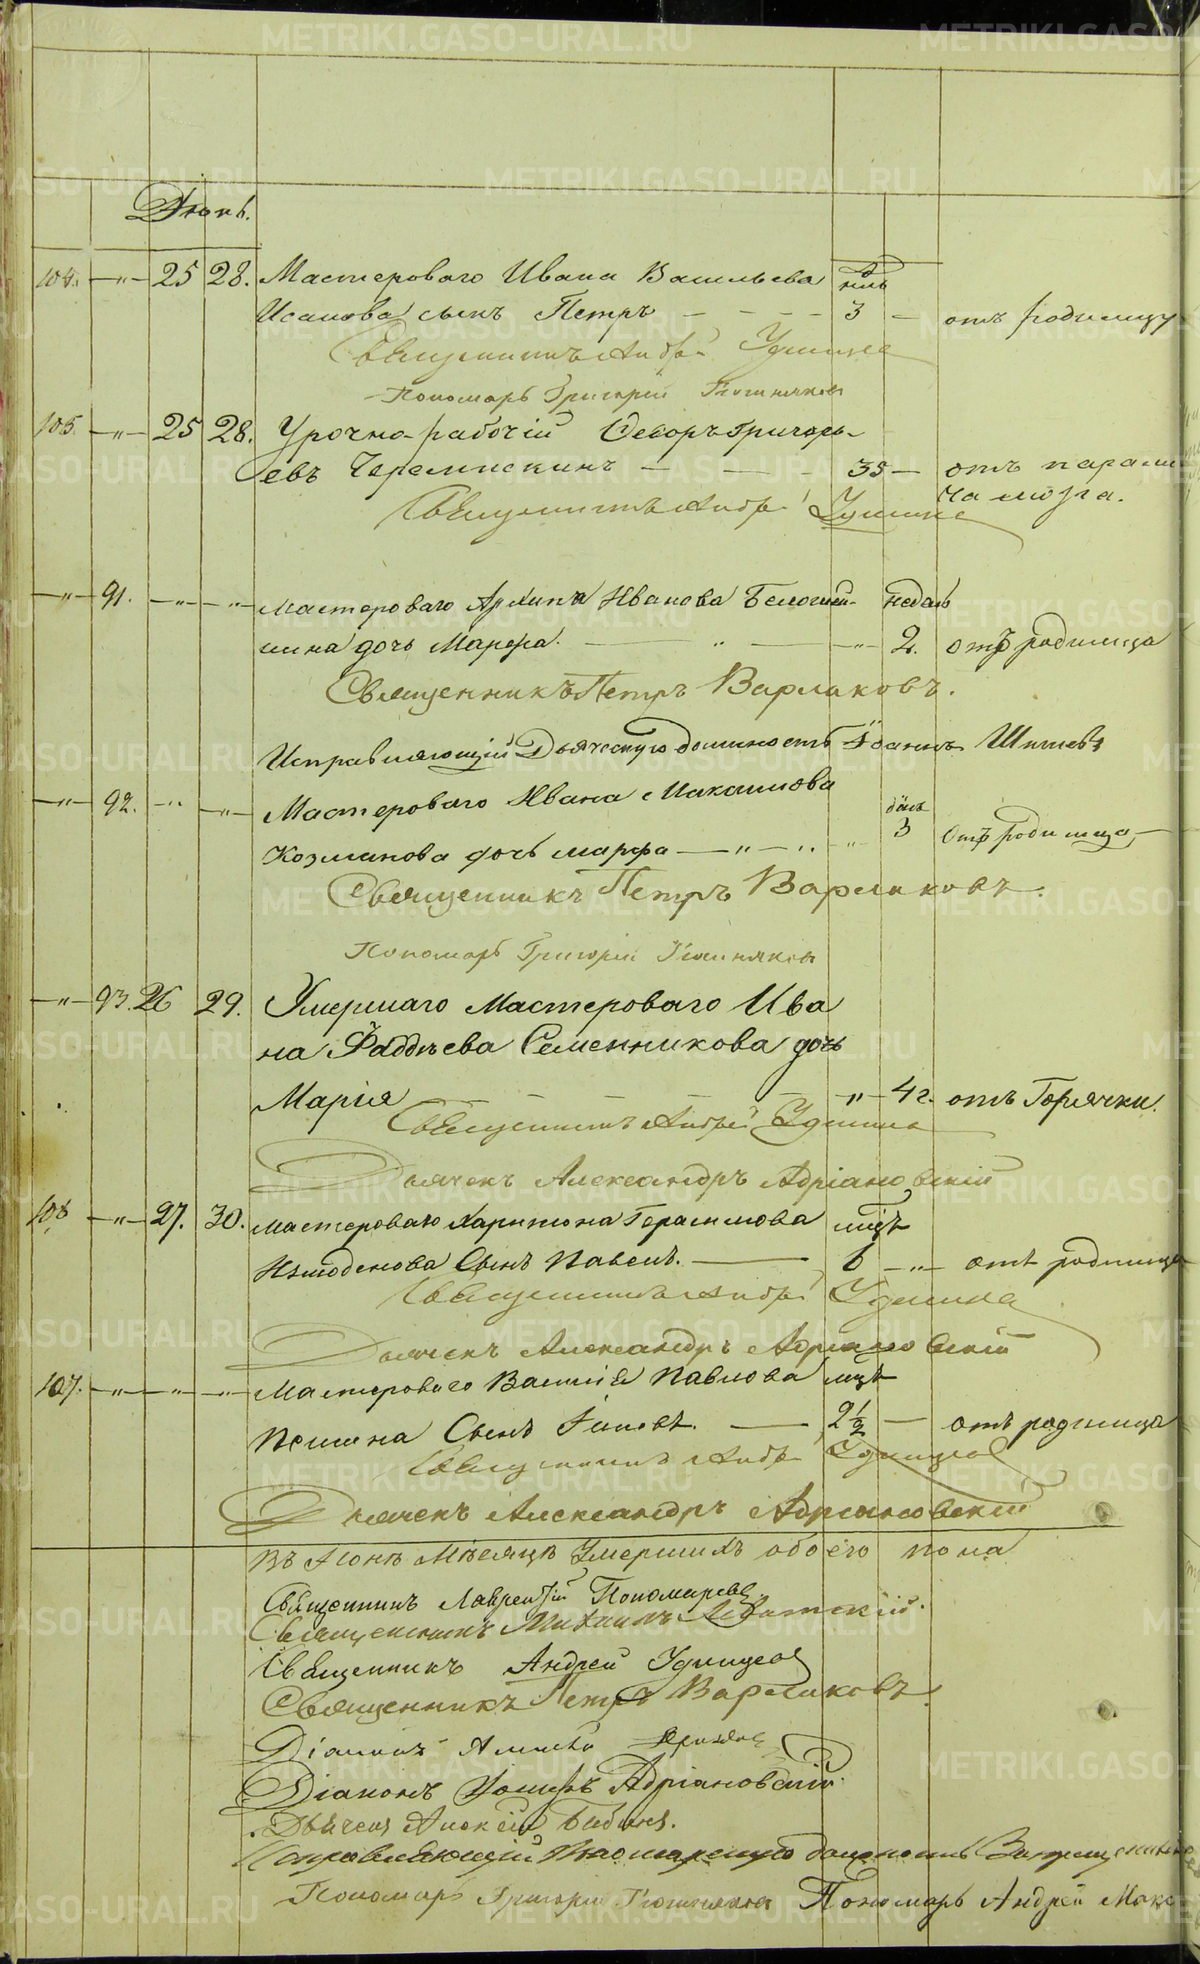 METRIKI.GASO-URAL.RU
Іюнь.
104. —„— 25 28. Мастероваго Ивана Васильева днъ
Исакова сынъ Петръ — — — 3 — отъ родимцу
Священникъ Андрей Удинцев
Пономарь Григорій
105. —„— 25 28. Урочно-рабочій Ѳедоръ Григорь-
евъ Черемискинъ — — 35 — отъ парали
ча мозга.
Священникъ Андрей Удинцев
—„— 91. —„— —„— Мастероваго Архипа Иванова недѣль
шина дочь Марѳа. — „ — —„— 2. отъ родимца
Священникъ Петръ Варлаковъ.
Исправляющій Дьяческую должность Іоаннъ
—„— 92. —„— —„— Мастероваго Ивана Максимова днъ
Козманова дочь Марфа —„— 3 отъ родимца —
Священникъ Петръ Варлаковъ.
Пономарь Григорій
—„— 93. 26 29. Умершаго Мастероваго Ива
на Фаддѣева Семенникова дочь
Марія — — — — „ — 4 г. отъ Горячки.
Священникъ Андрей Удинцев
Дьячекъ Александръ Адріановскій
106 —„— 27. 30. Мастероваго Харитона Герасимова мцъ
Измоденова Сынъ Павелъ. — 6 —„— отъ родимца
Священникъ Андрей Удинцев
Дьячекъ Александръ Адріановскій
107. —„— —„— —„— Мастероваго Василія Павлова мцъ
Сынъ — 2½ — отъ родимца
Священникъ Андрей Удинцев
Дьячекъ Александръ Адріановскій
Въ Іюнѣ Мѣсяцѣ Умершихъ обоего пола
Священникъ Лаврентій Пономаревъ
Священникъ Михаилъ
Священникъ Андрей Удинцев
Священникъ Петръ Варлаковъ.
Діаконъ
Діаконъ Іосифъ Адріановскій.
Дьячекъ Алексѣй Бабинъ.
Исправляющій Пономарскую должность
Пономарь Григорій Пономарь Андрей